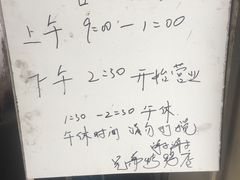 上午 9:00-1:00
下午 2:30 开始营业
1:30-2:30 午休
午休时间 请勿打扰
谢谢
兄弟烤鸭店